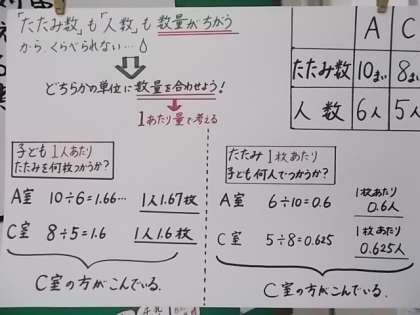 「たたみ数」も「人数」も 数量がちがう
から くらべられない…
どちらかの単位に数量を合わせよう!
1あたり量で考える
A C
たたみ数 10まい 8まい
人数 6人 5人
子ども1人あたり
たたみを何枚つかうか?
A室 10÷6=1.66… 1人1.67枚
C室 8÷5=1.6 1人1.6枚
C室の方がこんでいる.
たたみ 1枚あたり
子ども何人でつかうか?
A室 6÷10=0.6 1枚あたり
0.6人
C室 5÷8=0.625 1枚あたり
0.625人
C室の方がこんでいる.